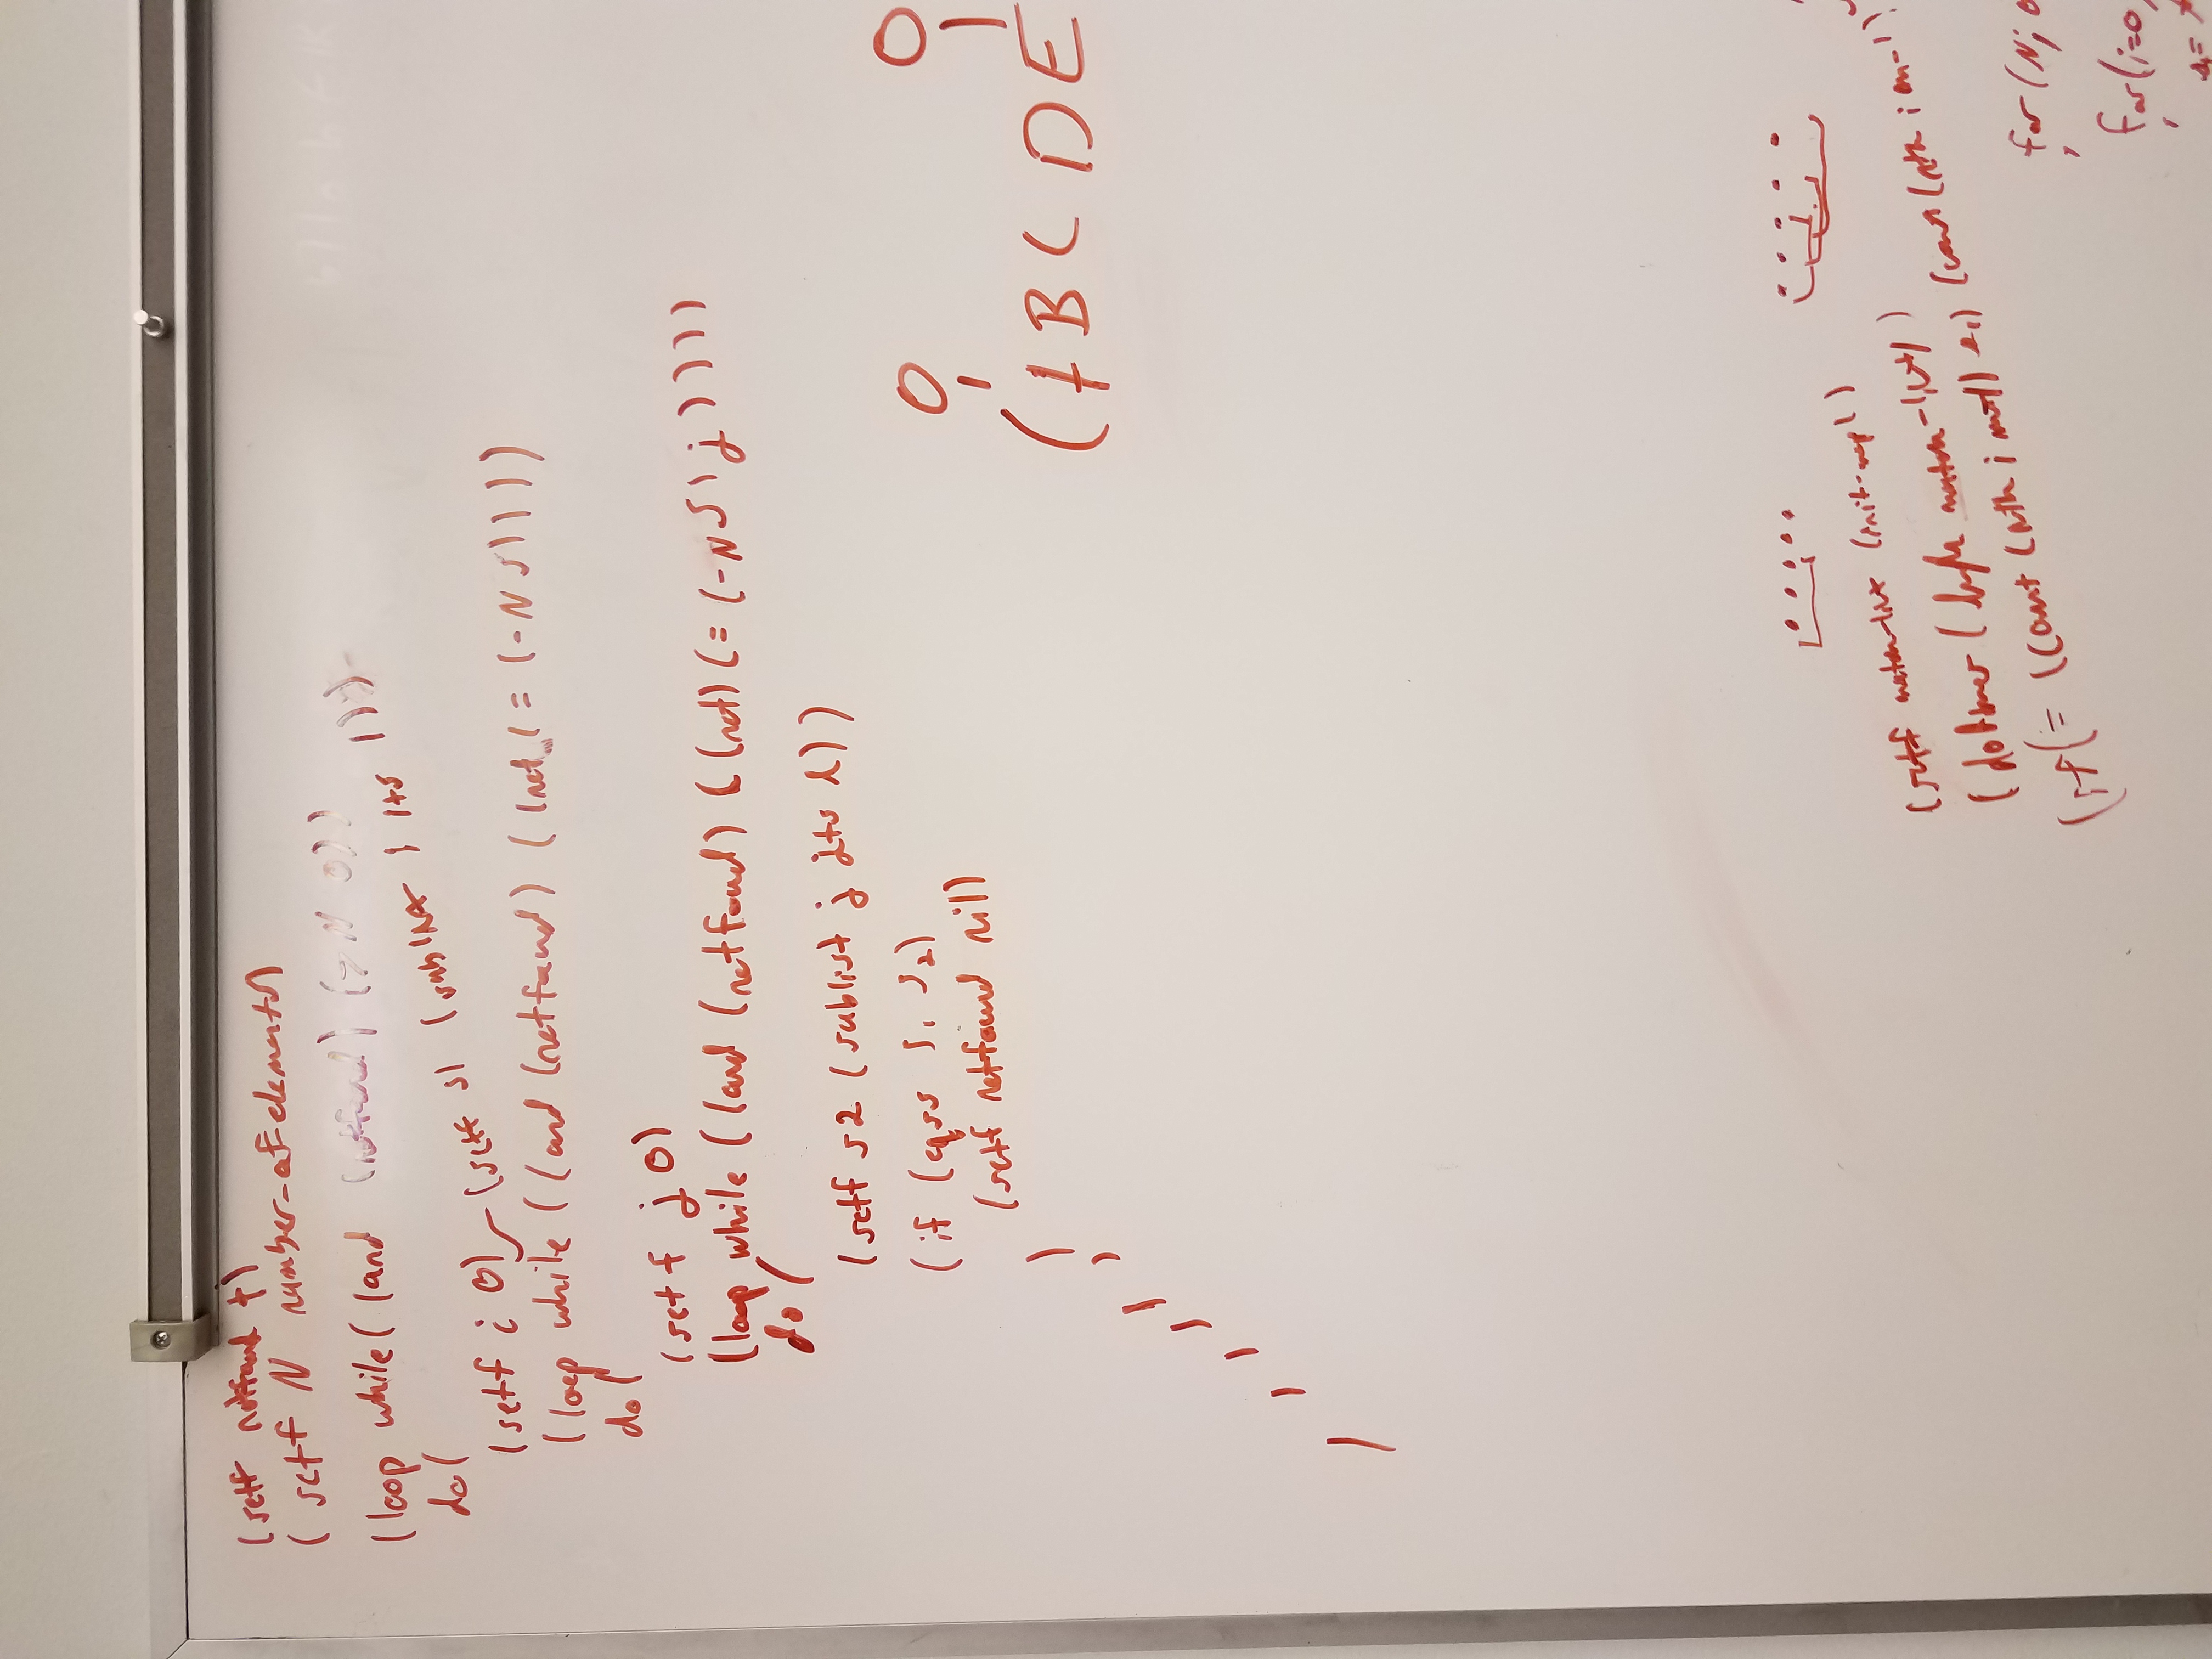 (setf notfound t)
(setf N number-of-elements)
(loop while ( (and (notfound) (> N 0))
do (
(setf i 0) (setf s1 (sublist i i+s l)))
(loop while ( (and (notfound) ( (not (= (- N s) ) ) ) )
do (
(setf j 0)
(loop while ( (and (notfound) ( (not) (= (- N S) j ) ) ) )
do (
(setf s2 (sublist j j+s l) )
(if (eqss s1 s2)
(setf notfound nil)
)
)
)
)
)
)
)
O O
( A B C D E
(setf match-list (init-map l)
(dotimes ( length match-list) )
(if (= (count (nth i m-l) ) (count (nth i m-l)
for (N; 0
for (i=0,